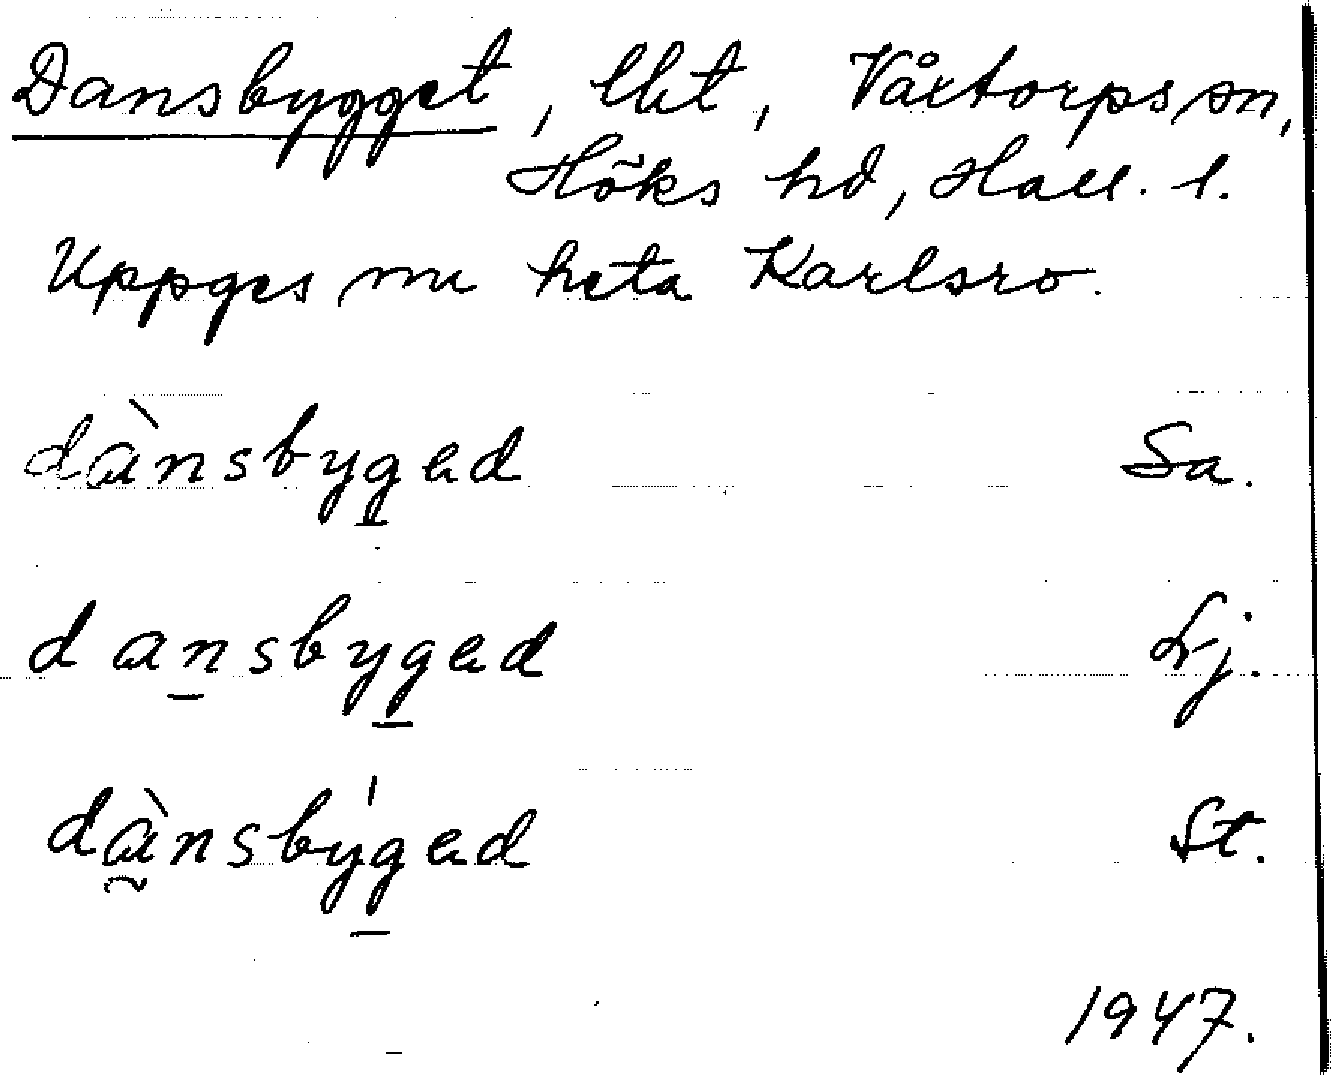 Dansbygget, lht, Våxtorps sn,
Höks hd, Hall. l.
Uppges nu heta Karlsro.
dànsbyg̲ad Sa.
dan̲sbyg̲ad Lj.
dà̰nsbýg̲ad St.
1947.